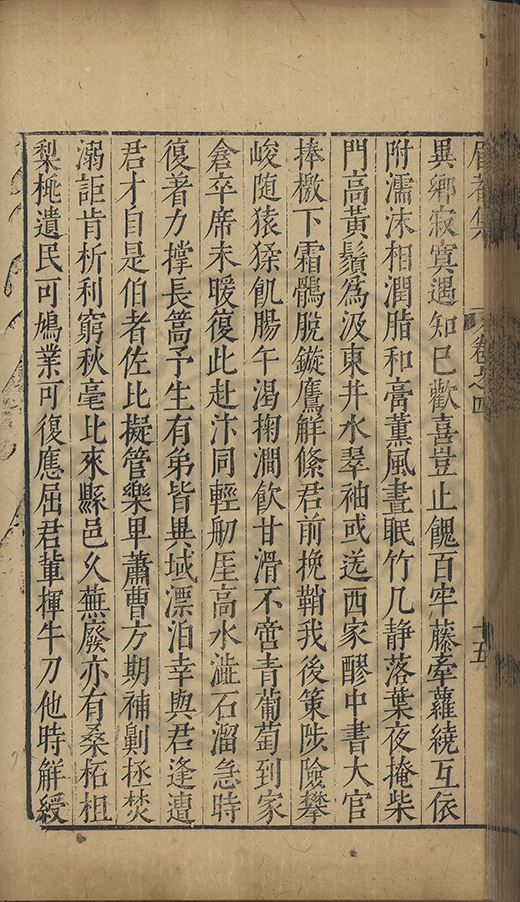 眉菴集 卷之四 十五
異鄉寂寞遇知已歡喜豈止餽百牢藤牽蘿繞互依
附濡沫相潤脂和膏薰風晝眠竹几静落葉夜掩柴
門高黃鬚爲汲東井水翠袖或送西家醪中書大官
捧檄下霜鶻脫鏇鷹觧絛君前挽鞘我後策陟險攀
峻随猿猱飢腸午渴掬澗飲甘滑不啻青葡萄到家
倉卒席未暖復此赴汴同輕舠厓高水澁石溜急時
復着力撑長篙予生有弟皆異域漂泊幸與君逢遭
君才自是伯者佐比擬管樂卑蕭曹方期補劓拯焚
溺詎肯析利窮秋毫比來縣邑久蕪廢亦有桑柘柤
梨桃遺民可鳩業可復應屈君輩揮牛刀他時觧綬